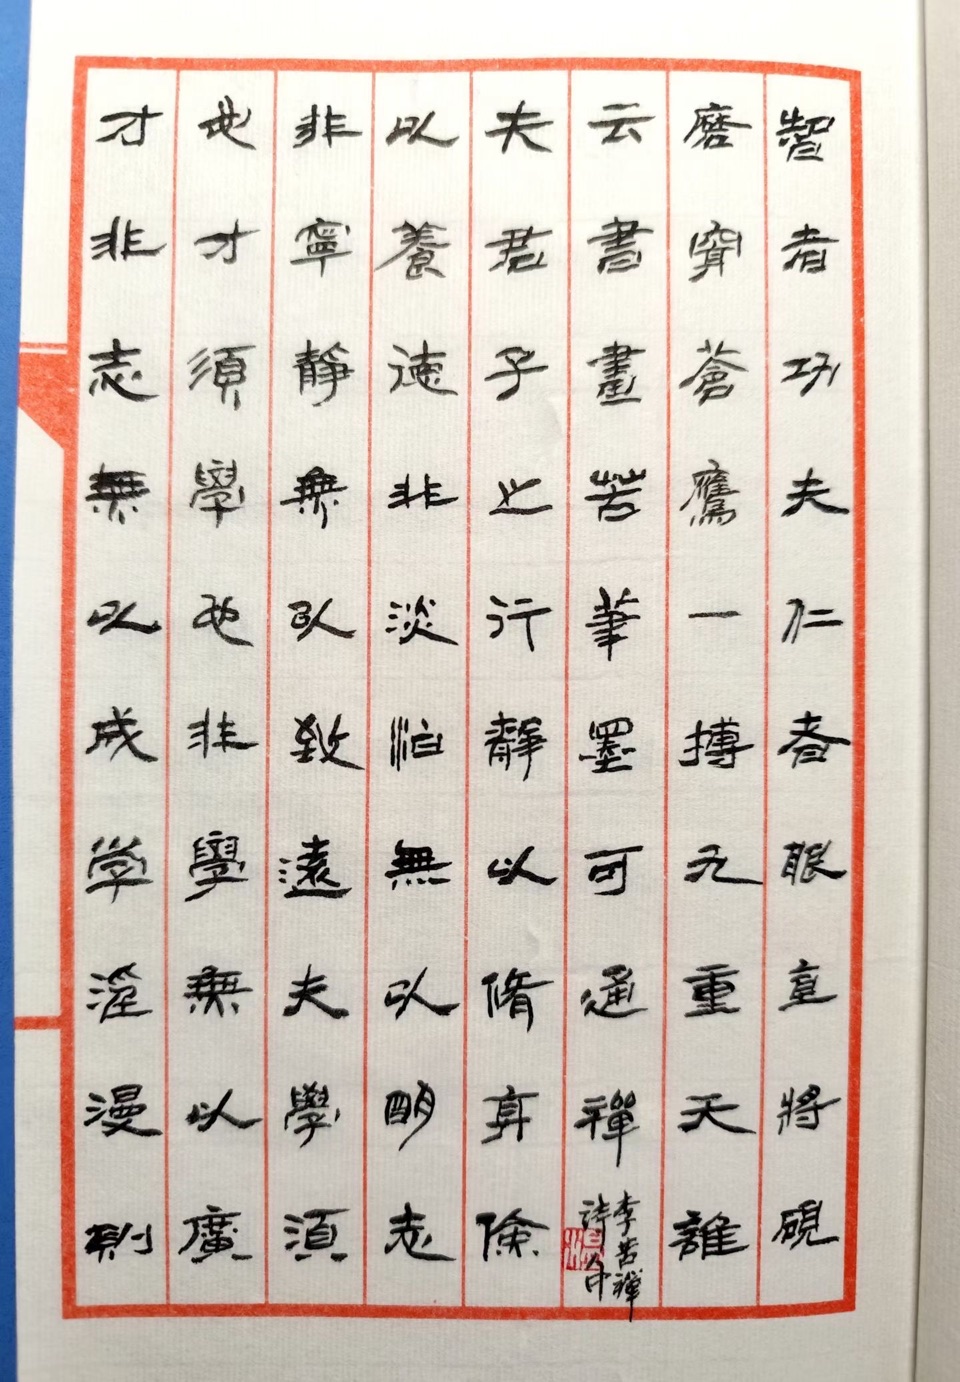 智者功夫仁者眼直將硯
磨穿蒼鷹一搏九重天誰
云書畫苦筆墨可通禪
李苦禪
詩
夫君子之行靜以脩身儉
以養德非淡泊無以明志
非寧靜無以致遠夫學須
也才須學也非學無以廣
才非志無以成学淫漫則